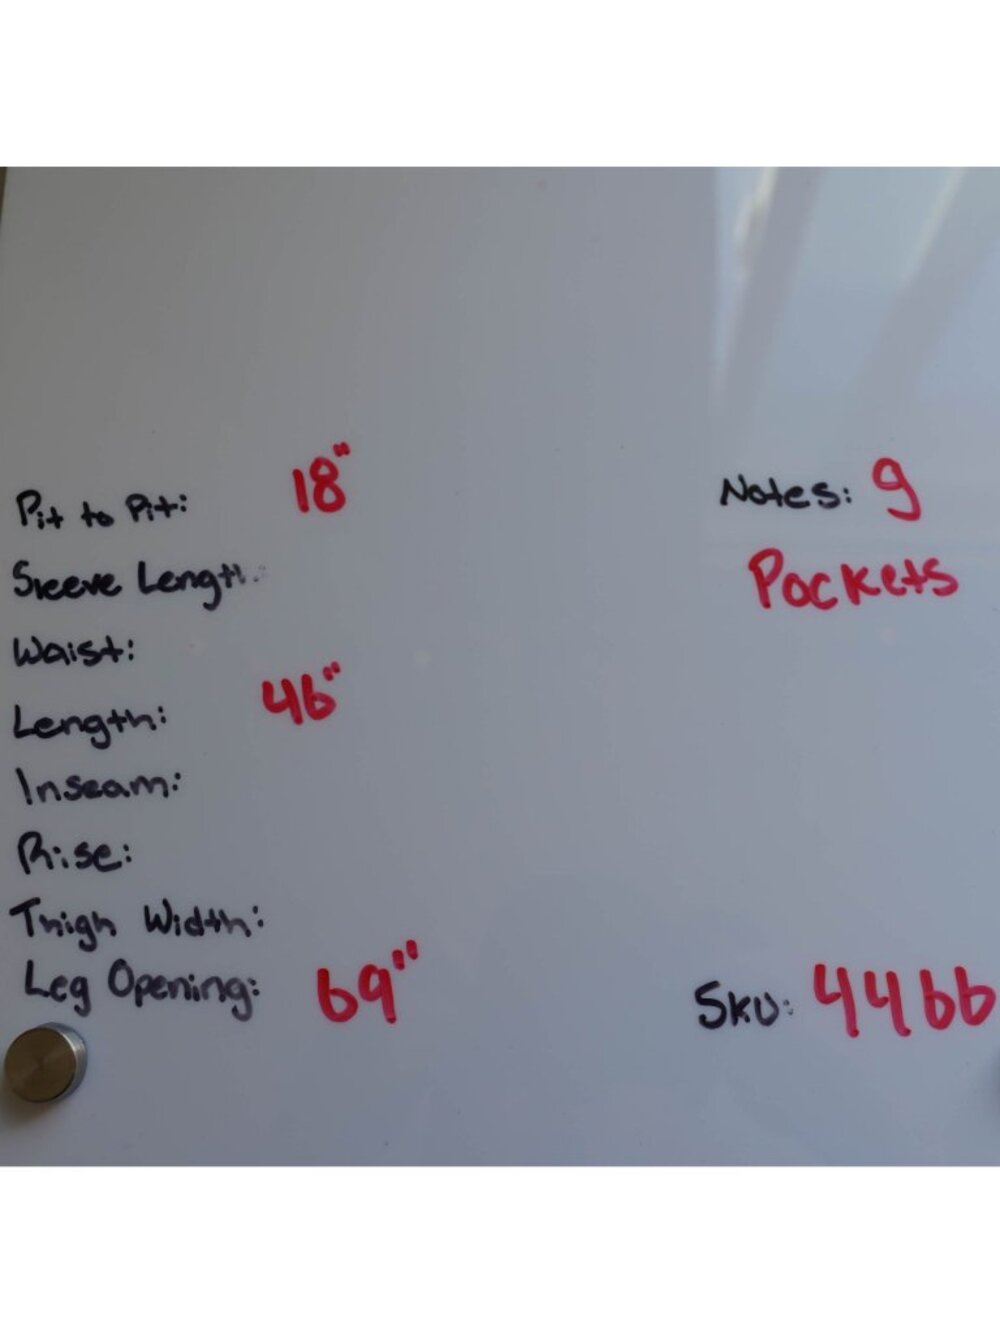 Pit to Pit: 18"
Sleeve Length:
Waist:
Length: 46"
Inseam:
Rise:
Thigh Width:
Leg Opening: 69"
Notes: 9
Pockets
SKU: 4466